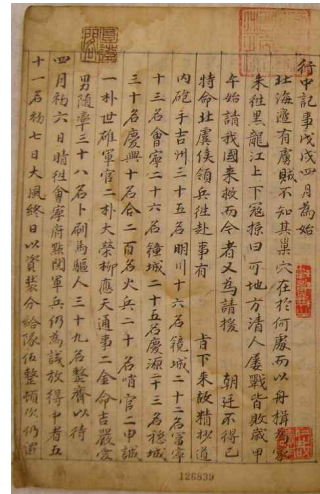 行中記事戊戌四月爲始
北海邊有虜賊不知其巢穴在於何處而以舟楫爲家
來往黑龍江上下寇掠曰可地方清人屢戰皆敗歲甲
午始請我國來救而今者又爲請援 朝廷不得已
特命北虞侯領兵徃赴事有 旨下來故精抄道
內砲手吉州三十五名明川十六名鏡城二十二名富寧
十三名會寧二十六名鍾城二十五名慶源二十三名穩城
三十名慶興十名合二百名火兵二十名哨官二申誠
一朴世雄軍官二朴大榮柳應天通事二金命吉嚴愛
男隨率三十八名卜刷馬驅人三十九名整齊以待
四月初六日晴徃會寧府點閱軍兵仍爲試放得中者五
十一名初七日大風終日以資裝分給隊伍整頓次仍留
126839